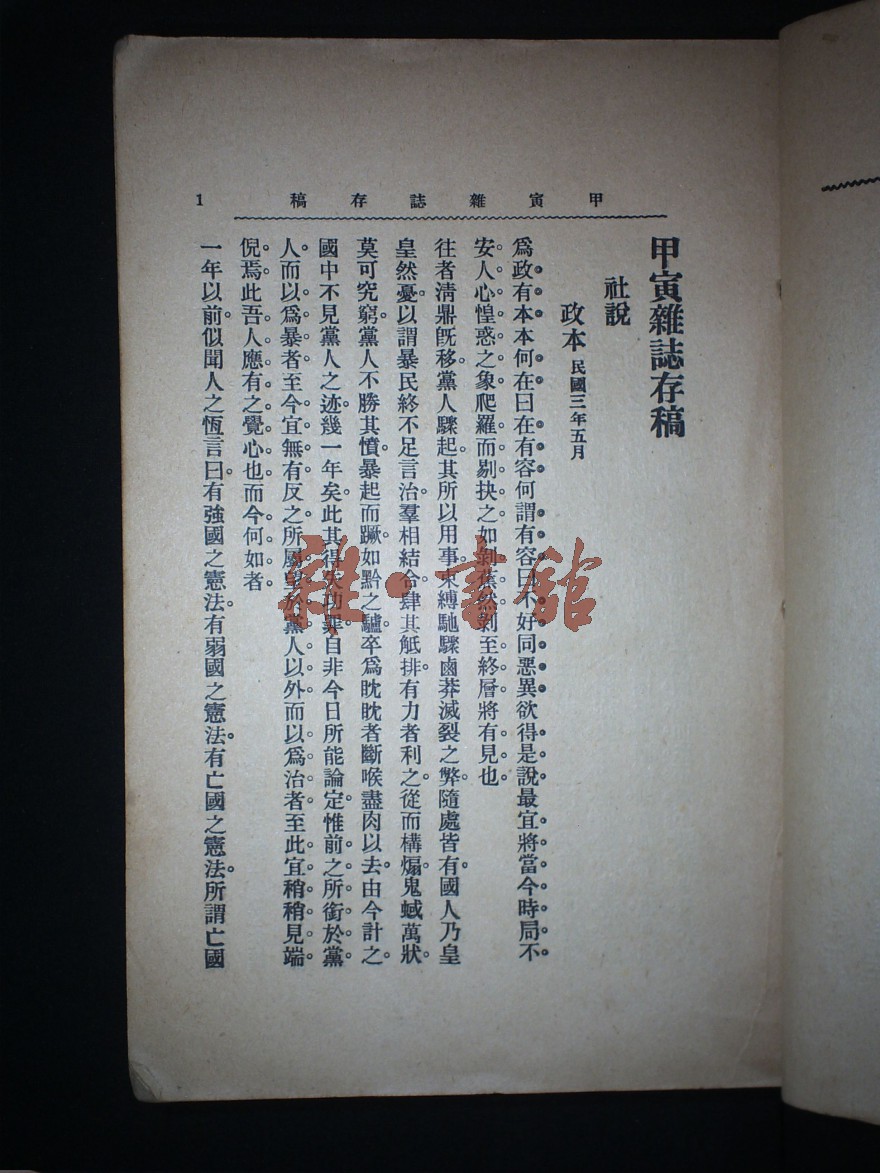 甲寅雜誌存稿
1
甲寅雜誌存稿
社說
政本 民國三年五月
爲政有本本何在曰在有容何謂有容曰不好同惡異欲得是說最宜將當今時局不
安人心惶惑之象爬羅而剔抉之如剝蕉然剝至終層將有見也
往者淸鼎旣移黨人驟起其所以用事束縛馳驟鹵莽滅裂之弊隨處皆有國人乃皇
皇然憂以謂暴民終不足言治羣相結合肆其觝排有力者利之從而構煽鬼蜮萬狀
莫可究窮黨人不勝其憤暴起而蹶如黔之驢卒爲眈眈者斷喉盡肉以去由今計之
國中不見黨人之迹幾一年矣此其得失功罪自非今日所能論定惟前之所銜於黨
人而以爲暴者至今宜無有反之所屬望於黨人以外而以爲治者至此宜稍稍見端
倪焉此吾人應有之覺心也而今何如者
一年以前似聞人之恆言曰有強國之憲法有弱國之憲法有亡國之憲法所謂亡國
雜·書館